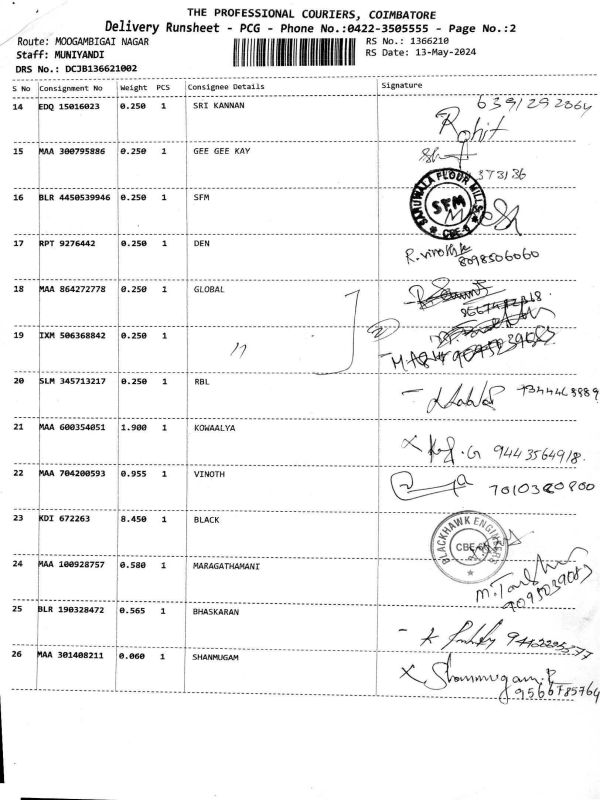 THE PROFESSIONAL COURIERS, COIMBATORE
Delivery Runsheet - PCG - Phone No.:0422-3505555 - Page No.:2
Route: MOOGAMBIGAI NAGAR
RS No.: 1366210
Staff: MUNIYANDI
RS Date: 13-May-2024
DRS No.: DCJB136621002
S No Consignment No Weight PCS Consignee Details Signature
14 EDQ 15016023 0.250 1 SRI KANNAN
6391292064
Rohit
15 MAA 300795886 0.250 1 GEE GEE KAY
373136
16 BLR 4450539946 0.250 1 SFM
FLOUR MILLS
SFM
CBE-6
17 RPT 9276442 0.250 1 DEN
8098506060
18 MAA 864272778 0.250 1 GLOBAL
19 IXM 506368842 0.250 1 "
20 SLM 345713217 0.250 1 RBL
7344463989
21 MAA 600354051 1.900 1 KOWAALYA
9443564918.
22 MAA 704200593 0.955 1 VINOTH
23 KDI 672263 8.450 1 BLACK
BLACKHAWK ENGINEERS
CBE-6
24 MAA 100928757 0.580 1 MARAGATHAMANI
9095039083
25 BLR 190328472 0.565 1 BHASKARAN
26 MAA 301408211 0.060 1 SHANMUGAM
Shanmugam.P
9566785764